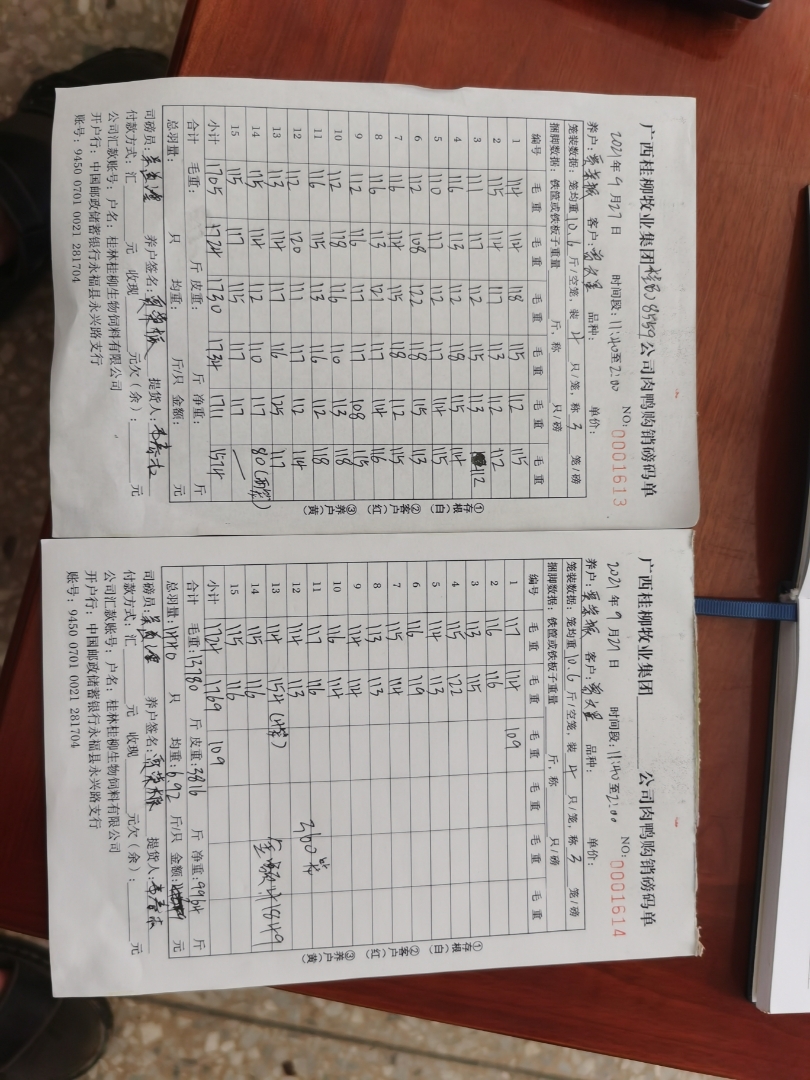 广西桂柳牧业集团 公司肉鸭购销磅码单
2021年9月27日 时间段：11:40至2:00 NO: 0001613
养户： 客户： 品种： 单价：
笼装数据：笼均重10.6斤/空笼，装4只/笼，称3笼/磅
捆脚数据：铁筐或铁板子重量 斤，称 只/磅
编号 毛重 毛重 毛重 毛重 毛重 毛重
1 114 114 118 115 112 115
2 115 114 117 113 112 112
3 111 117 112 115 113 112
4 116 113 112 118 115 114
5 110 112 112 117 114 115
6 112 108 122 118 115 113
7 116 114 115 118 112 115
8 116 113 121 117 114 116
9 112 116 117 117 108 115
10 112 118 116 110 113 118
11 116 115 113 116 112 118
12 112 120 111 117 112 114
13 113 117 117 116 125 117
14 115 114 112 110 117 80(两笼)
15 115 117 115 117 117 —
小计 1705 1724 1730 1734 1711 1574
合计 毛重： 斤 皮重： 斤 净重： 斤
总羽量： 只 均重： 斤/只 金额： 元
司磅员： 养户签名： 提货人：
付款方式：汇 元 收现 元欠（余）： 元
公司汇款账号：户名：桂林桂柳生物饲料有限公司
开户行：中国邮政储蓄银行永福县永兴路支行
账号：9450 0701 0021 281704
①存根（白） ②客户（红） ③养户（黄）
广西桂柳牧业集团 公司肉鸭购销磅码单
2021年9月27日 时间段：11:40至2:00 NO: 0001614
养户： 客户： 品种： 单价：
笼装数据：笼均重10.6斤/空笼，装4只/笼，称3笼/磅
捆脚数据：铁筐或铁板子重量 斤，称 只/磅
编号 毛重 毛重 毛重 毛重 毛重 毛重
1 117 114 109
2 116 116
3 113 115
4 115 122
5 114 113
6 116 119
7 115 114
8 113 113
9 114 114
10 116 114
11 117 116
12 114 113 360笼
13 114 154(4笼)
14 115 116 金额：41849
15 115 116
小计 1724 1769 109
合计 毛重：13780 斤 皮重：3816 斤 净重：9964 斤
总羽量：1440 只 均重：6.92 斤/只 金额： 元
司磅员： 养户签名： 提货人：
付款方式：汇 元 收现 元欠（余）： 元
公司汇款账号：户名：桂林桂柳生物饲料有限公司
开户行：中国邮政储蓄银行永福县永兴路支行
账号：9450 0701 0021 281704
①存根（白） ②客户（红） ③养户（黄）